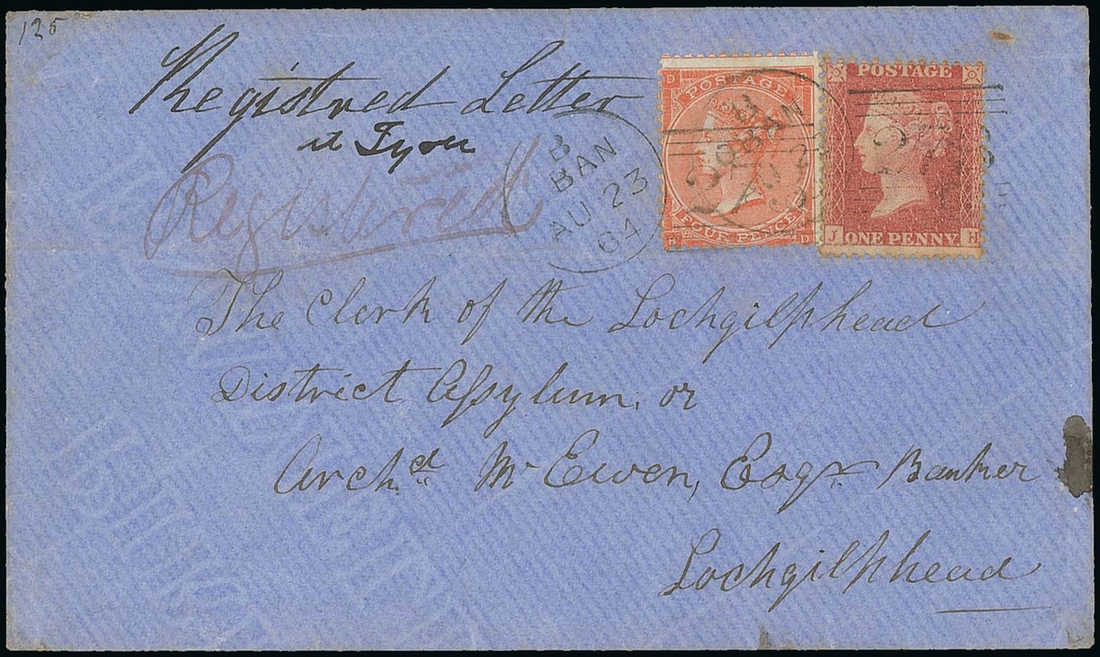 125
Registred Letter
Registered
B
BAN
AU 23
64
POSTAGE
FOUR PENCE
POSTAGE
J ONE PENNY H
The Clerk of the Lochgilphead
District Assylum, or
Archd. Mc Ewen, Esqr. Banker
Lochgilphead